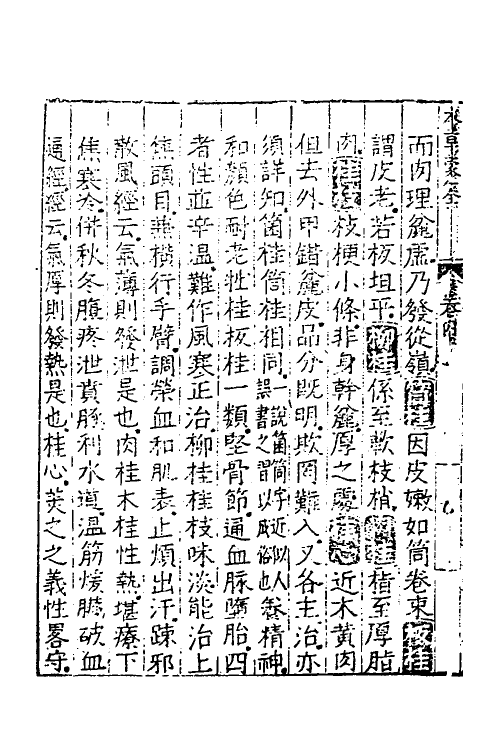 本草蒙筌
卷四
而肉理麄虛乃發從嶺筒桂因皮嫩如筒卷束板桂
謂皮老若板坦平柳桂係至軟枝梢桂楂至厚脂
肉桂枝枝梗小條非身幹麄厚之處桂心近木黃肉
但去外甲錯麄皮品分既明欺罔難入又各主治亦
須詳知箇桂筒桂相同一說箇筒字近似人誤書之習以成俗也養精神
和顏色耐老牡桂板桂一類堅骨節通血脉墮胎四
者性並辛温難作風寒正治柳桂桂枝味淡能治上
焦頭目兼橫行手臂調榮血和肌表止煩出汗疎邪
散風經云氣薄則發泄是也肉桂木桂性熱堪療下
焦寒冷併秋冬腹疼泄賁豚利水道温筋煖臟破血
通經經云氣厚則發熱是也桂心美之之義性畧守